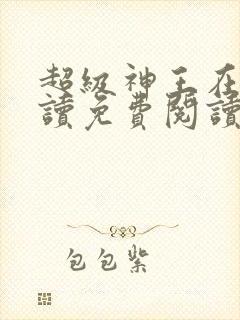 超級神王在
讀免費閱讀
包包紫